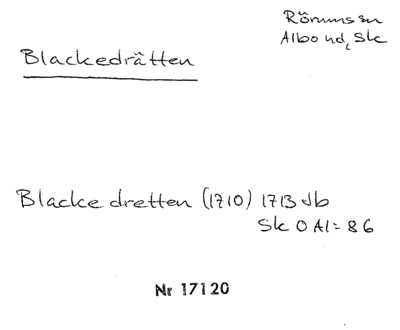 Rörums sn
Albo hd, Sk
Blackedrätten
Blacke dretten (1710) 1713 Jb
Sk O Al = 86
Nr 17120